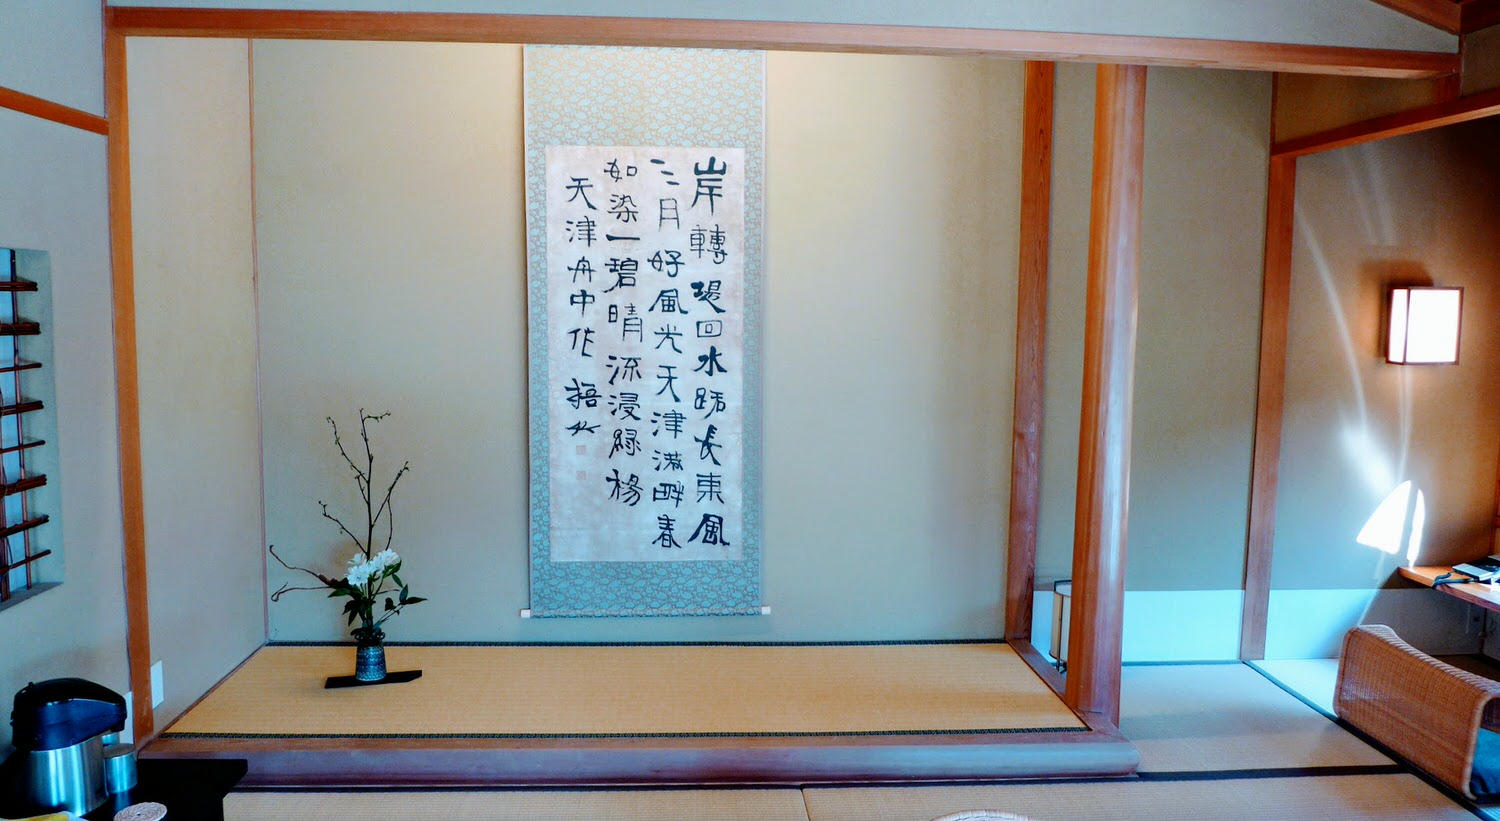 岸轉堤回水路長東風
二月好風光天津満畔春
如染一碧晴流浸緑楊
天津舟中作